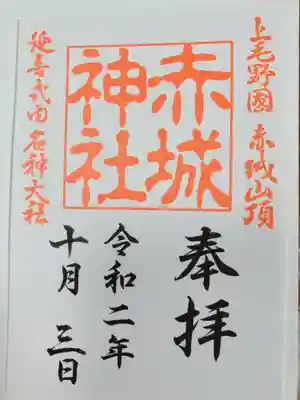 上毛野國 赤城山頂
奉拝
赤城
神社
令和二年
十月 三日
延喜式内 名神大社